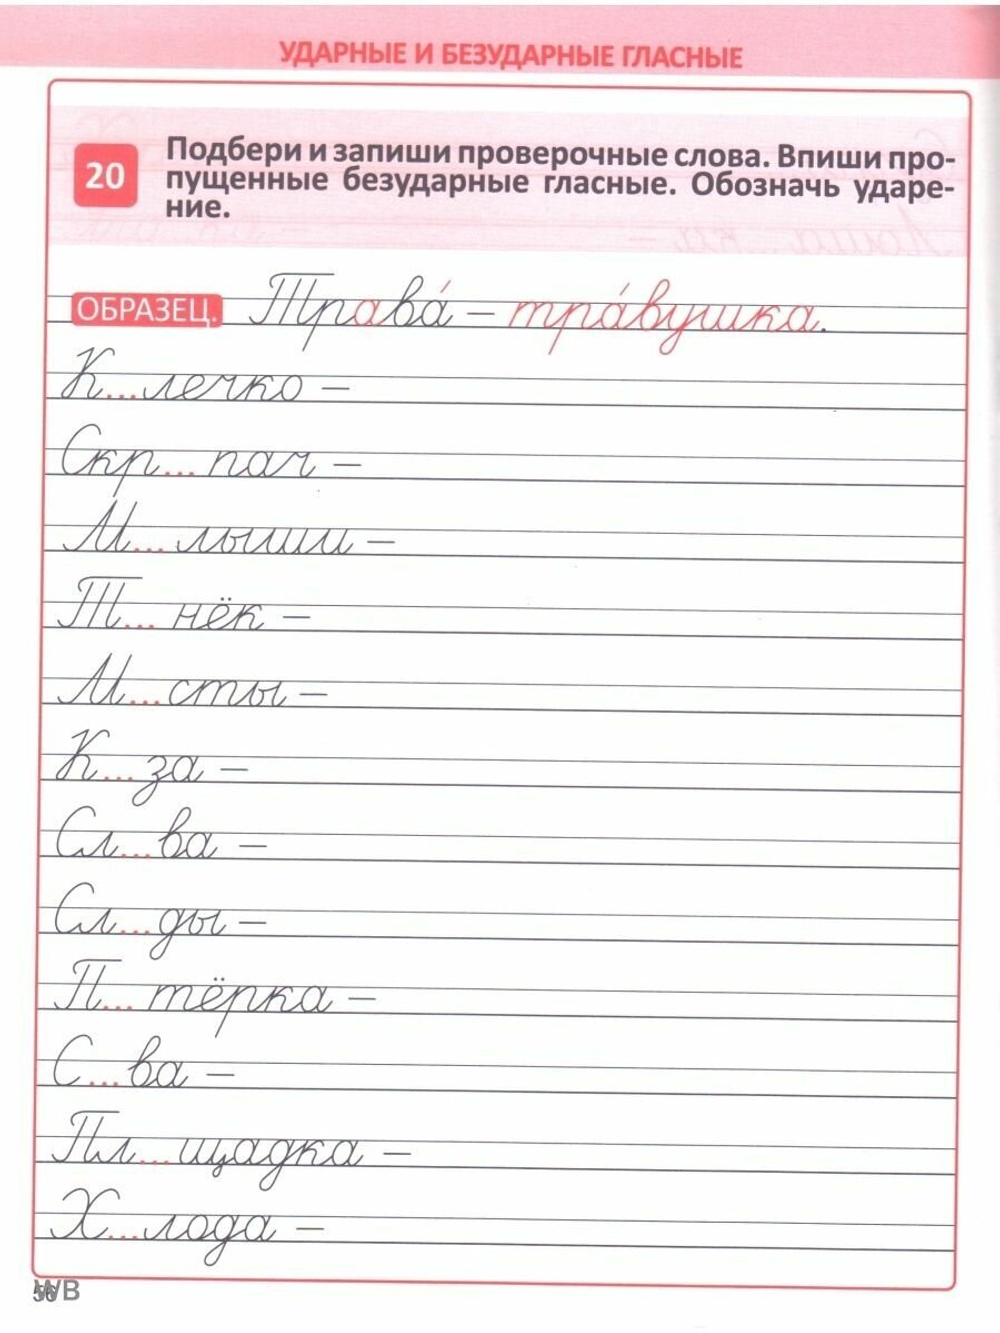 УДАРНЫЕ И БЕЗУДАРНЫЕ ГЛАСНЫЕ
20
Подбери и запиши проверочные слова. Впиши про-
пущенные безударные гласные. Обозначь ударе-
ние.
ОБРАЗЕЦ. Трава́ – тра́вушка.
К...лечко –
Скр... пач –
М... лыши –
Т... нёк –
М...сты –
К...за –
Сл...ва –
Сл...ды –
П... тёрка –
С...ва –
Пл...щадка –
Х...лода –
WB